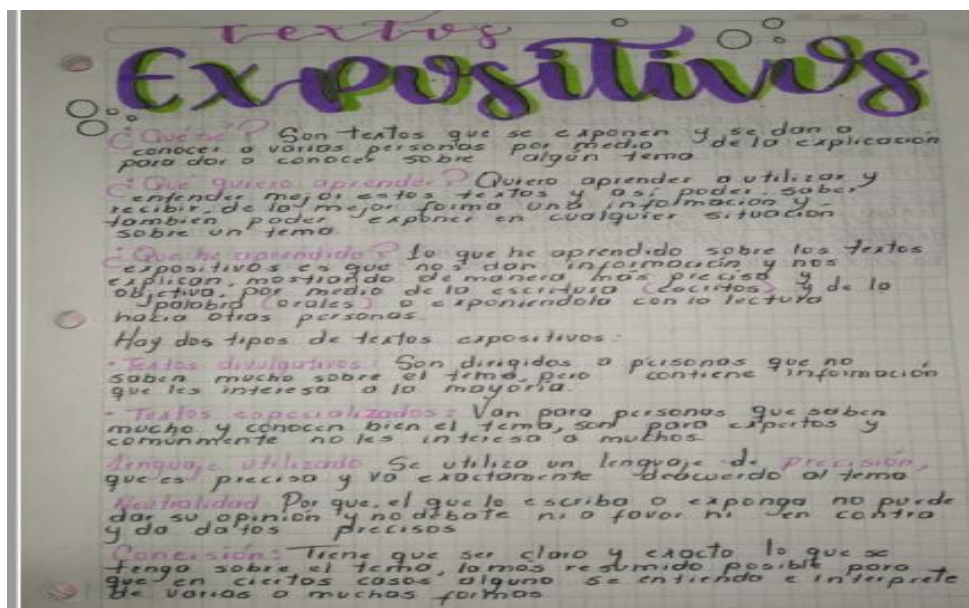 textos
Expositivos
¿Qué sé? Son textos que se exponen y se dan a
conocer a varias personas por medio de la explicación
para dar a conocer sobre algún tema
¿Qué quiero aprender? Quiero aprender a utilizar y
entender mejor estos textos y así poder saber
recibir de la mejor forma una información y
tambien poder exponer en cualquier situación
sobre un tema.
¿Que he aprendido? lo que he aprendido sobre los textos
expositivos es que nos dan información y nos
explican, mostrando de manera más precisa y
objetiva, por medio de la escritura (escritos) y de la
palabra (orales) o exponiendola con la lectura
hacia otras personas.
Hay dos tipos de textos expositivos:
• Textos divulgativos: Son dirigidos a personas que no
saben mucho sobre el tema, pero contiene información
que les interesa a la mayoría.
• Textos especializados: Van para personas que saben
mucho y conocen bien el tema, son para expertos y
comúnmente no les interesa a muchos.
Lenguaje utilizado Se utiliza un lenguaje de precisión,
que es precisa y va exactamente deacuerdo al tema
Neutralidad Por que, el que lo escriba o exponga no puede
dar su opinión y no debate ni a favor ni en contra
y da datos precisos
Concisión: Tiene que ser claro y exacto lo que se
tenga sobre el tema, lo mas resumido posible para
que en ciertos casos alguno se entienda e interprete
de varias o muchas formas